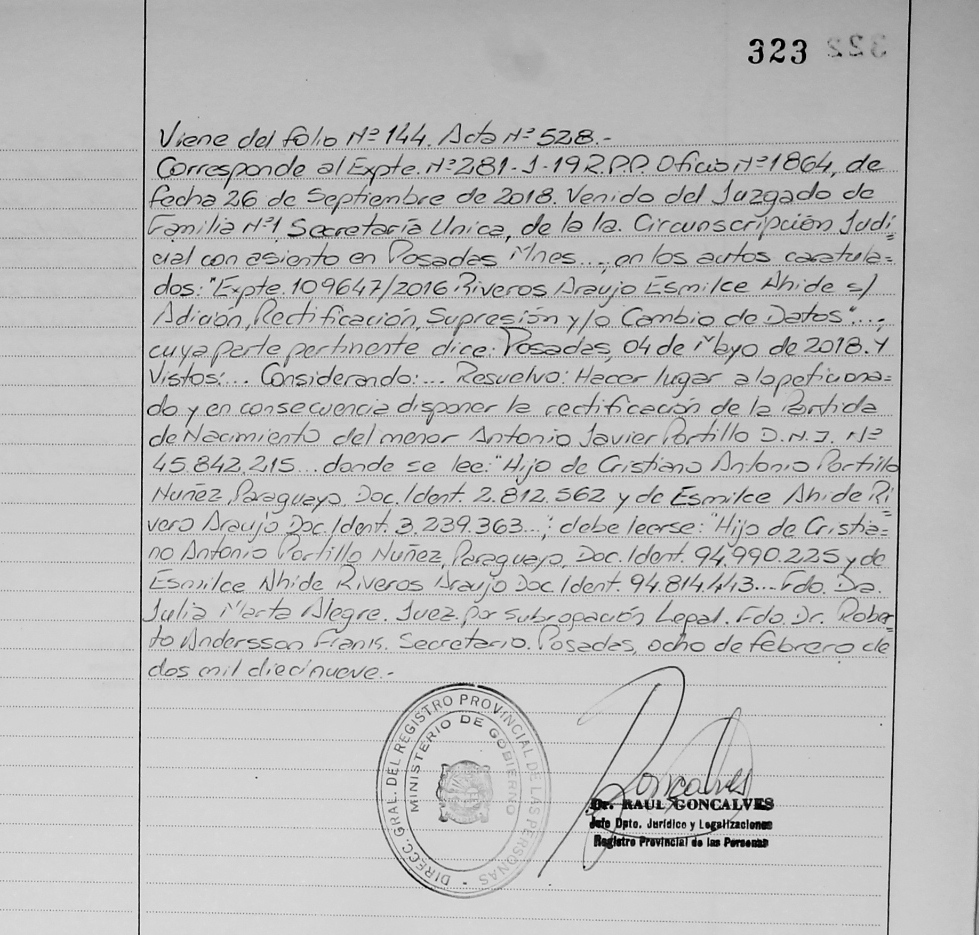 323 322
Viene del folio Nº 144. Acta Nº 528.-
Corresponde al Expte. Nº 281-J-19 R.P.P. Oficio Nº 1864, de
fecha 26 de Septiembre de 2018. Venido del Juzgado de
Familia Nº 1 Secretaría Unica, de la 1a. Circunscripción Judi=
cial con asiento en Posadas Mnes..., en los autos caratula=
dos: "Expte. 109647/2016 Riveros Araujo Esmilce Ahide s/
Adición, Rectificación, Supresión y/o Cambio de Datos"...,
cuya parte pertinente dice: Posadas, 04 de Mayo de 2018. Y
Vistos:... Considerando:... Resuelvo: Hacer lugar a lo peticiona=
do y en consecuencia disponer la rectificación de la Partida
de Nacimiento del menor Antonio Javier Portillo D.N.I. Nº
45.842.215... donde se lee: "Hijo de Cristiano Antonio Portillo
Nuñez, Paraguayo, Doc. Ident. 2.812.562 y de Esmilce Ahide Ri=
vero Araujo Doc. Ident. 3.239.363...; debe leerse: "Hijo de Cristia=
no Antonio Portillo Nuñez, Paraguayo, Doc. Ident. 94.990.225 y de
Esmilce Ahide Riveros Araujo Doc. Ident. 94.814.443... Fdo. Dra.
Julia Marta Alegre. Juez por Subrogación Legal. Fdo. Dr. Rober=
to Andersson Franis. Secretario. Posadas, ocho de febrero de
dos mil diecinueve.-
DIRECC. GRAL. DEL REGISTRO PROVINCIAL DE LAS PERSONAS
MINISTERIO DE GOBIERNO
Goncalves
Dr. RAUL GONCALVES
Jefe Dpto. Jurídico y Legalizaciones
Registro Provincial de las Personas